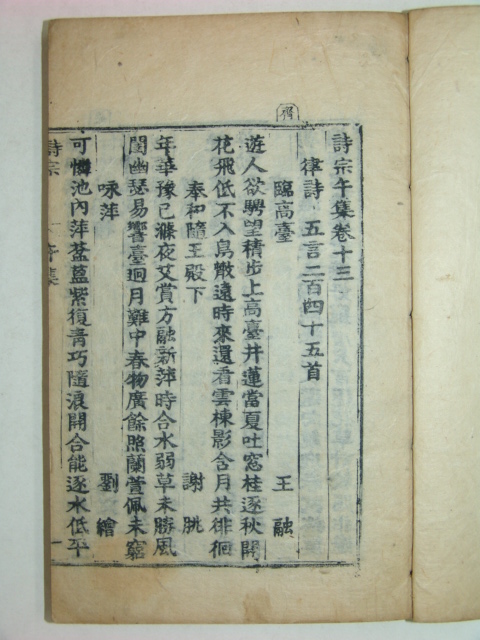 齊
詩宗午集卷十三
律詩 五言二百四十五首
臨高臺 王融
遊人欲騁望積步上高臺井蓮當夏吐窓桂逐秋開
花飛低不入鳥散遠時來還看雲棟影含月共徘徊
奉和隨王殿下 謝朓
年華豫已滌夜艾賞方融新萍時合水弱草未勝風
閨幽瑟易響臺迥月難中春物廣餘照蘭萱佩未窮
咏萍 劉繪
可憐池內萍葐蒀紫復青巧隨浪開合能逐水低平
詩宗 午集 一